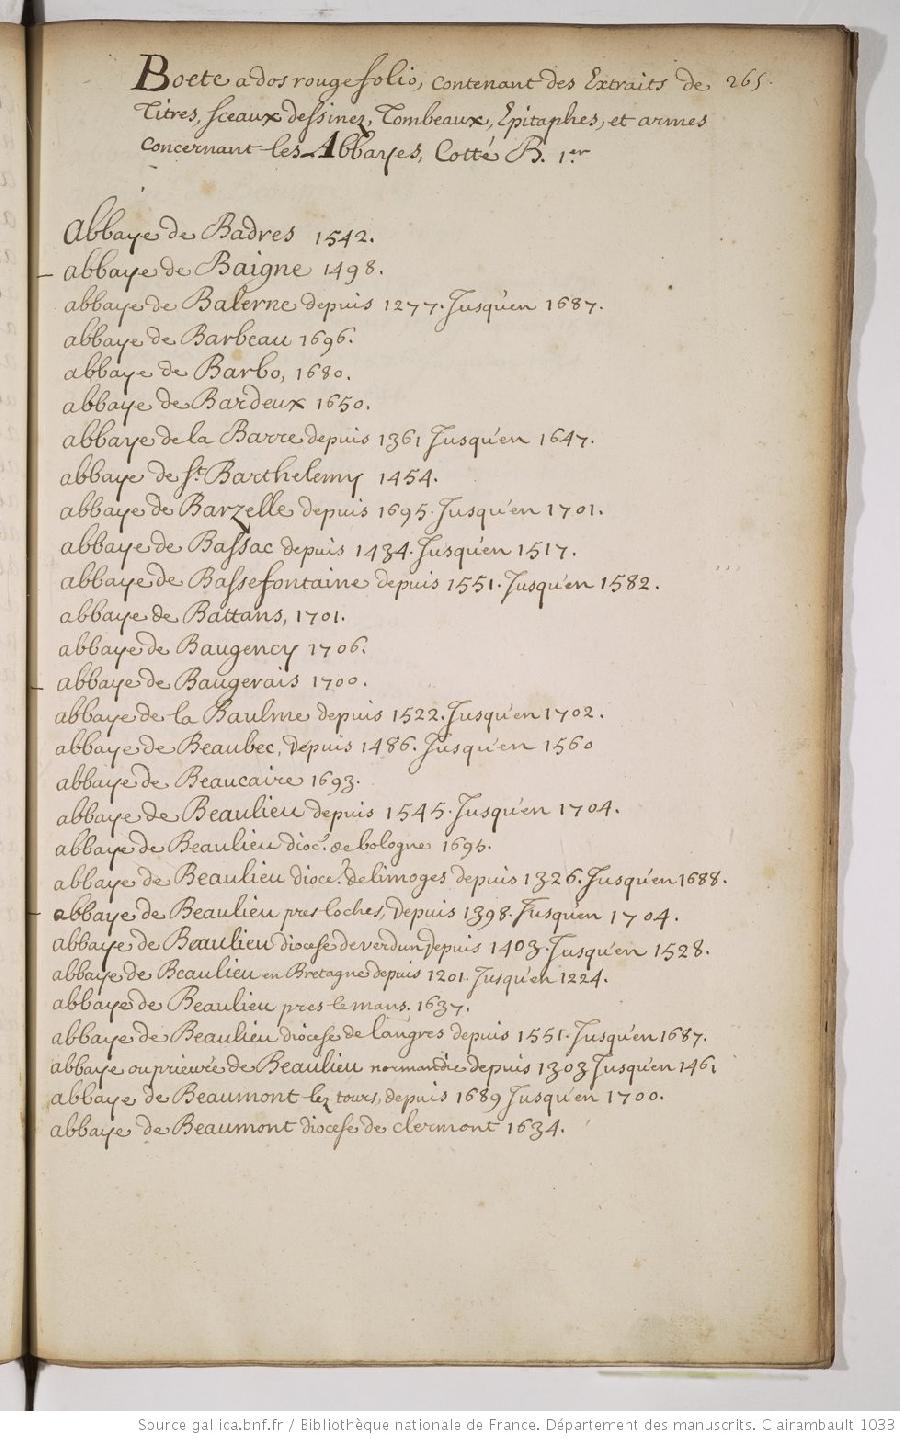 Boete a dos rouge folio, contenant des Extraits de 265.
Titres, sceaux dessinez, Tombeaux, Epitaphes, et armes
concernant les Abbayes, Cotté B. 1.er
Abbaye de Badres 1542.
abbaye de Baigne 1498.
abbaye de Balerne depuis 1277. Jusqu'en 1687.
abbaye de Barbeau 1696.
abbaye de Barbo, 1680.
abbaye de Bardeux 1650.
abbaye de la Barre depuis 1361 Jusqu'en 1647.
abbaye de St. Barthelemy 1454.
abbaye de Barzelle depuis 1695. Jusqu'en 1701.
abbaye de Bassac depuis 1434. Jusqu'en 1517.
abbaye de Bassefontaine depuis 1551. Jusqu'en 1582.
abbaye de Battans, 1701.
abbaye de Baugency 1706.
abbaye de Baugerais 1700.
abbaye de la Baulme depuis 1522. Jusqu'en 1702.
abbaye de Beaubec, depuis 1486. Jusqu'en 1560
abbaye de Beaucaire 1693.
abbaye de Beaulieu depuis 1545. Jusqu'en 1704.
abbaye de Beaulieu dioc.e de bologne 1695.
abbaye de Beaulieu dioce.e de limoges depuis 1326. Jusqu'en 1688.
abbaye de Beaulieu pres loches, depuis 1398. Jusqu'en 1704.
abbaye de Beaulieu diocese de verdun, depuis 1403. Jusqu'en 1528.
abbaye de Beaulieu en Bretagne depuis 1201. Jusqu'en 1224.
abbaye de Beaulieu pres le mans. 1637.
abbaye de Beaulieu diocese de langres depuis 1551. Jusqu'en 1687.
abbaye ou prieuré de Beaulieu normandie depuis 1303 Jusqu'en 1461
abbaye de Beaumont lez tours, depuis 1689 Jusqu'en 1700.
abbaye de Beaumont diocese de clermont 1634.
Source gallica.bnf.fr / Bibliothèque nationale de France. Département des manuscrits. Clairambault 1033